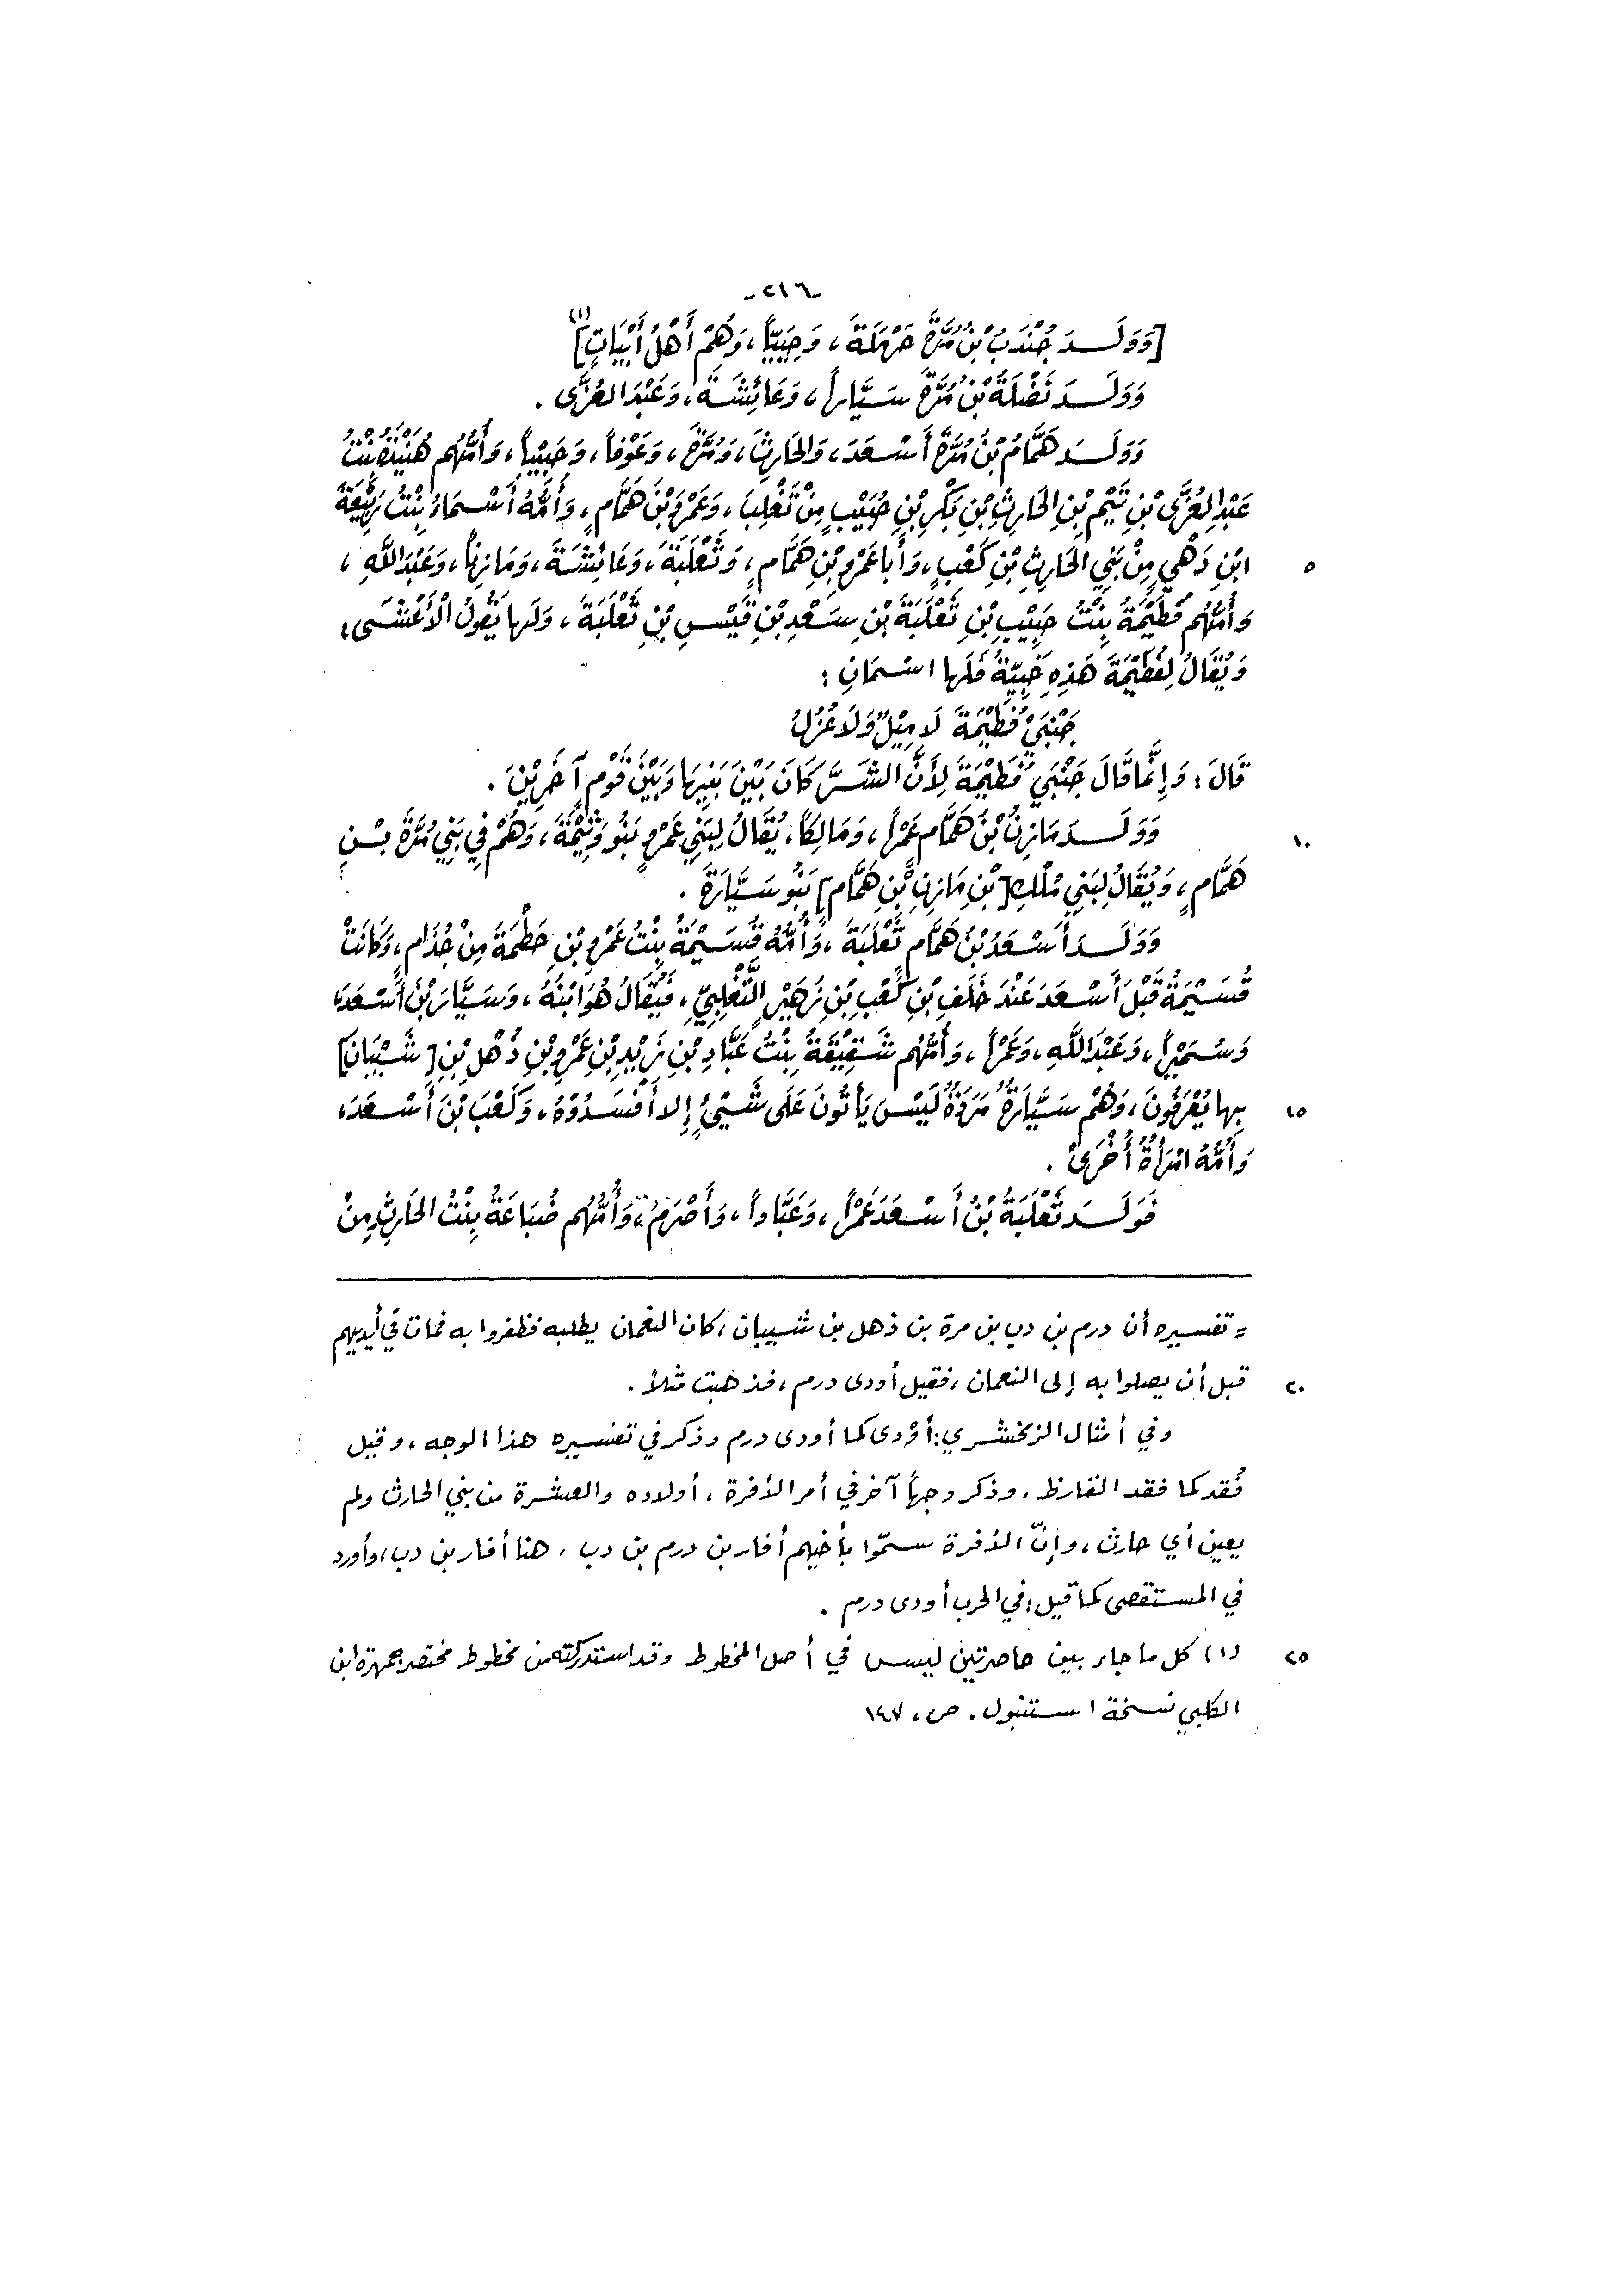 -٢١٦-
[وَوَلَدَ جُنْدَبُ بْنُ مُرَّةَ جَهْلَةَ، وَحَبِيْباً، وَهُمْ أَهْلُ أَبْيَاتٍ](١)
وَوَلَدَ نَضْلَةُ بْنُ مُرَّةَ سَيَّاراً، وَعَائِشَةَ، وَعَبْدَ العُزَّى.
وَوَلَدَ هَمَّامُ بْنُ مُرَّةَ أَسْعَدَ، وَالحَارِثَ، وَمُرَّةَ، وَعَوْفاً، وَحَبِيْباً، وَأُمُّهُم هُنَيْدَةُ بِنْتُ
عَبْدِ العُزَّى بْنِ تَيْمِ بْنِ الحَارِثِ بْنِ بَكْرِ بْنِ حُبَيْبٍ مِنْ تَغْلِبَ، وَعَمْرَو بْنَ هَمَّامٍ، وَأُمُّهُ أَسْمَاءُ بِنْتُ رَبِيْعَةَ
ابْنِ دَهْيٍ مِنْ بَنِي الحَارِثِ بْنِ كَعْبٍ، وَأَبا عَمْرِو بْنِ هَمَّامٍ، وَثَعْلَبَةَ، وَعَائِشَةَ، وَمَازِناً، وَعَبْدَ اللَّهِ، ٥
وَأُمُّهُم فُطَيْمَةُ بِنْتُ حَبِيْبِ بْنِ ثَعْلَبَةَ بْنِ سَعْدِ بْنِ قَيْسِ بْنِ ثَعْلَبَةَ، وَلَها يَقُولُ الأَعْشَى،
وَيُقَالُ لِفُطَيْمَةَ هَذِهِ حَبِيَّةُ فَلَها اسْمَانِ:
جَنْبَيْ فُطَيْمَةَ لَا مِيْلٌ وَلَا عُزُلُ
قَالَ: وَإِنَّمَا قَالَ جَنْبَيْ فُطَيْمَةَ لِأَنَّ الشَّرَّ كَانَ بَيْنَ بَنِيهَا وَبَيْنَ قَوْمٍ آخَرِيْنَ.
وَوَلَدَ مَازِنُ بْنُ هَمَّامٍ عَمْراً، وَمَالِكاً، يُقَالُ لِبَنِي عَمْرٍو بَنُو وَثِيْمَةَ، وَهُمْ فِي بَنِي مُرَّةَ بْنِ ١٠
هَمَّامٍ، وَيُقَالُ لِبَنِي مَلِكِ [بْنِ مَازِنِ بْنِ هَمَّامٍ] بَنُو سَيَّارَةَ.
وَوَلَدَ أَسْعَدُ بْنُ هَمَّامٍ ثَعْلَبَةَ، وَأُمُّهُ قُسَيْمَةُ بِنْتُ عَمْرِو بْنِ حَطْمَةَ مِنْ جُذَامٍ، وَكَانَتْ
قُسَيْمَةُ قَبْلَ أَسْعَدَ عِنْدَ خَلَفِ بْنِ كَعْبِ بْنِ زُهَيْرٍ التَّغْلِبِيِّ، فَيُقَالُ هُوَ ابْنُهُ، وَسَيَّارَ بْنَ أَسْعَدَ،
وَسُمَيْراً، وَعَبْدَ اللَّهِ، وَعَمْراً، وَأُمُّهُم شَقِيْقَةُ بِنْتُ عَبَّادِ بْنِ زَيْدِ بْنِ عَمْرِو بْنِ ذُهْلِ بْنِ [شَيْبَانَ]
بِها يُعْرَفُونَ، وَهُمْ سَيَّارَةٌ مَرَدَةٌ لَيْسَ يَأْتُونَ عَلَى شَيْءٍ إِلا أَفْسَدُوْهُ، وَكَعْبَ بْنَ أَسْعَدَ، ١٥
وَأُمُّهُ امْرَأَةٌ أُخْرَى.
فَوَلَدَ ثَعْلَبَةُ بْنُ أَسْعَدَ عَمْراً، وَعَبَّاداً، وَأَصْرَمَ، وَأُمُّهُم ضُبَاعَةُ بِنْتُ الحَارِثِ مِنْ
= تفسيره أن درم بن دب بن مرة بن ذهل بن شيبان، كان النعمان يطلبه فظفروا به فمات في أيديهم
قبل أن يصلوا به إلى النعمان، فقيل أودى درم، فذهبت مثلاً. ٢٠
وفي أمثال الزمخشري: أوْدى كما أودى درم وذكر في تفسيره هذا الوجه، وقيل
فُقد كما فقد القارظ، وذكر وجهاً آخر في أمر الأفرة، أولاده والعشرة من بني الحارث ولم
يعين أي حارث، وإنّ الأفرة سمّوا بأخيهم أفار بن درم بن دب، هنا أفار بن دب، وأورد
في المستقصى كما قيل: في الحرب أودى درم.
(١) كل ما جاء بين حاصرتين ليس في أصل المخطوط وقد استدركته من مخطوط مختصر جمهرة ابن ٢٥
الكلبي نسخة استنبول. ص، ١٤٧